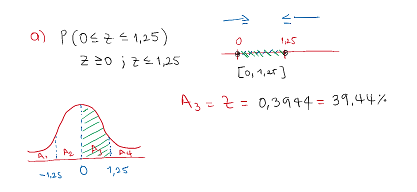 a) P(0 ≤ z ≤ 1,25)
z ≥ 0 ; z ≤ 1,25
0 1,25
[0, 1,25]
A₃ = Z = 0,3944 = 39,44%
A₁ A₂ A₃ A₄
-1,25 0 1,25